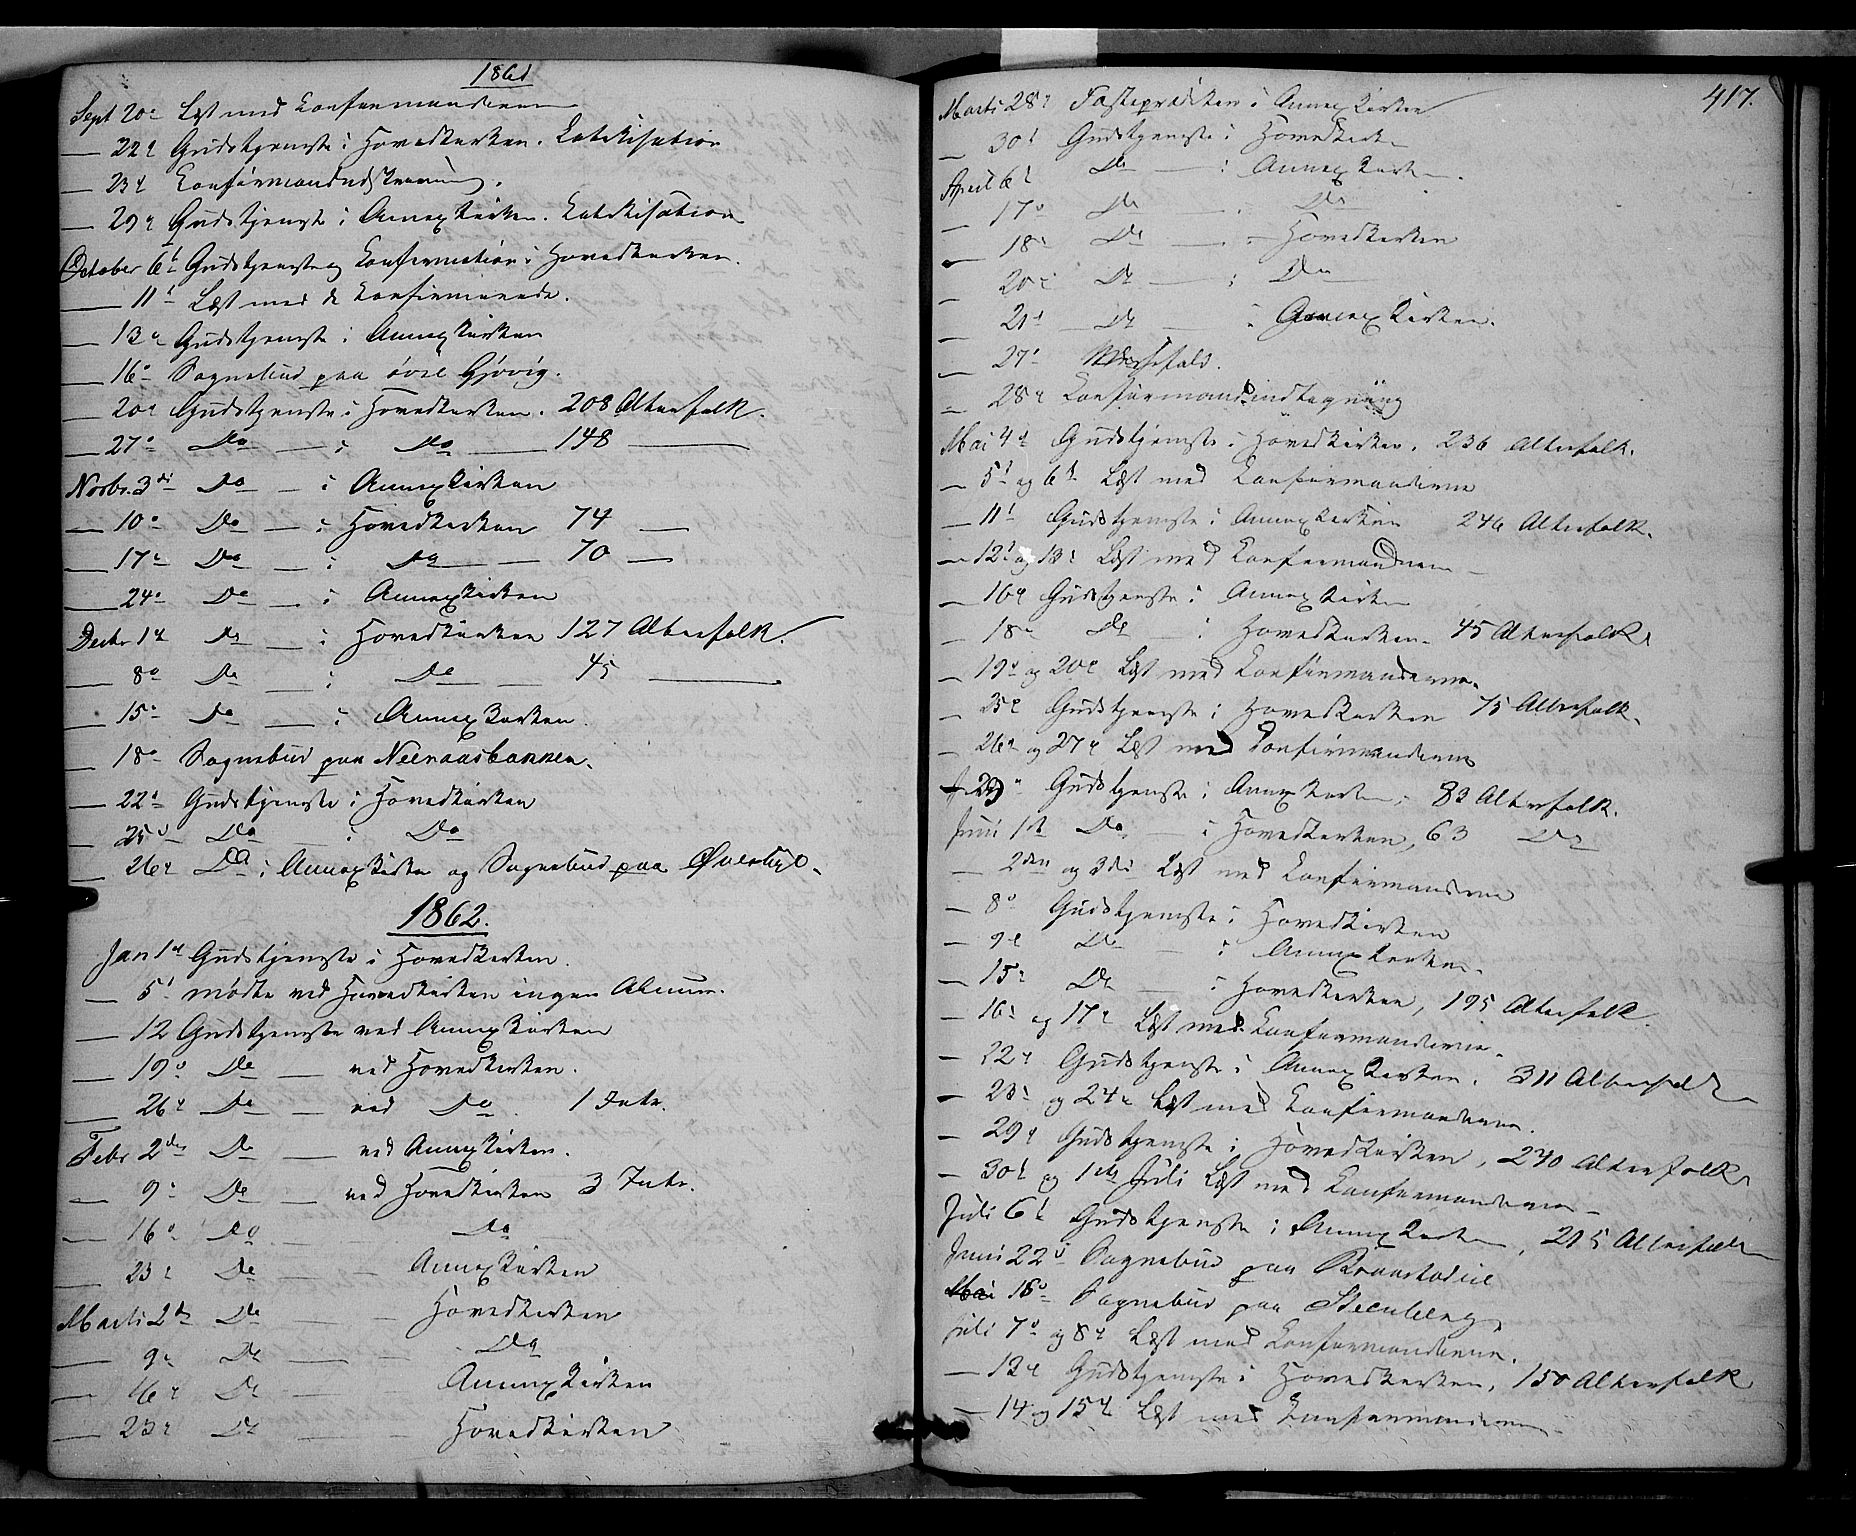 1861
Sept 20de Læst med Confirmanderne
— 22de Gudstjeneste i Hovedkirken. Catekisation
— 23de Confirmand
— 29de Gudstjeneste i Annexkirken. Catekisation
October 6te Gudstjeneste og Confirmation i Hovedkirken.
— 11te Læst med de Confirmerede.
— 13de Gudstjeneste i Annexkirken
— 16de Sognebud paa øvre Gjøvig.
— 20de Gudstjeneste i Hovedkirken. 208 Alterfolk.
— 27de Do — i Do — 148 —
Novbr. 3die Do — i Annexkirken
— 10de Do — i Hovedkirken 74 —
— 17de Do — i Do — 70 —
— 24de Do — i Annexkirken
Decbr 1ste Do — i Hovedkirken 127 Alterfolk.
— 8de Do — i Do — 45 —
— 15de Do — i Annexkirken.
— 18de Sognebud paa Neeraasbakken.
— 22de Gudstjeneste i Hovedkirken
— 25de Do — i Do
— 26de Do i Annexkirken og Sognebud paa
1862.
Jan 1ste Gudstjeneste i Hovedkirken.
— 5te mødte ved Hovedkirken ingen Almue.
— 12 Gudstjeneste ved Annexkirken
— 19de Do — ved Hovedkirken.
— 26de Do — ved Do. 1 Intr.
Febr 2den Do — ved Annexkirken.
— 9de Do — ved Hovedkirken 3 Intr.
— 16de Do Do
— 23de Do — Annexkirken
Marti 2den Do — Hovedkirken
— 9de Do — Do
— 16de Do — Annexkirken
— 23de Do — Hovedkirken
417.
Marti 28de Fasteprædiken i Annexkirken
— 30te Gudstjeneste i Hovedkirken
April 6te Do — i Annexkirken.
— 17de Do — i Do
— 18de Do — i Hovedkirken
— 20de Do — i Do
— 21de Do — i Annexkirken.
— 27de Messefald.
— 28de Confirmandindtegning
Mai 4de Gudstjeneste i Hovedkirken. 236 Alterfolk.
— 5te og 6te Læst med Confirmanderne
— 11te Gudstjeneste i Annexkirken 246 Alterfolk.
— 12te og 13de Læst med Confirmanderne
— 16de Gudstjeneste i Annexkirken
— 18de Do — i Hovedkirken. 45 Alterfolk
— 19de og 20de Læst med Confirmanderne.
— 25de Gudstjeneste i Hovedkirken 75 Alterfolk.
— 26de og 27de Læst med Confirmanderne
— 29de Gudstjeneste i Annexkirken, 83 Alterfolk.
Juni 1ste Do — i Hovedkirken, 63 Do
— 2den og 3die Læst med Confirmanderne
— 8de Gudstjeneste i Hovedkirken
— 9de Do — i Annexkirken.
— 15de Do — i Hovedkirken, 195 Alterfolk.
— 16de og 17de Læst med Confirmanderne.
— 22de Gudstjeneste i Annexkirken. 311 Alterfolk
— 23de og 24de Læst med Confirmanderne.
— 29de Gudstjeneste i Hovedkirken, 240 Alterfolk
— 30te og 1ste Juli Læst med Confirmanderne
Juli 6te Gudstjeneste i Annexkirken, 215 Alterfolk
Juni 22de Sognebud paa
Mai 18de Sognebud paa Steenberg.
Juli 7de og 8de Læst med Confirmanderne.
— 13de Gudstjeneste i Hovedkirken, 150 Alterfolk
— 14 og 15de Læst med Confirmanderne